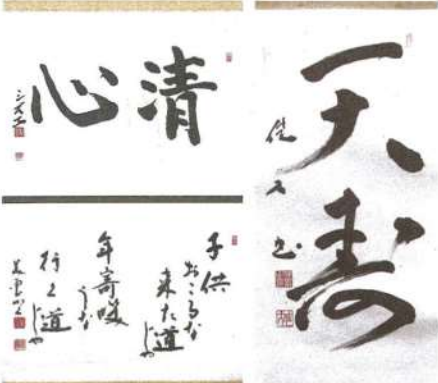 清心
子供
おこるな
来た道じゃ
年寄咲
うな
行く道じゃ
天寿